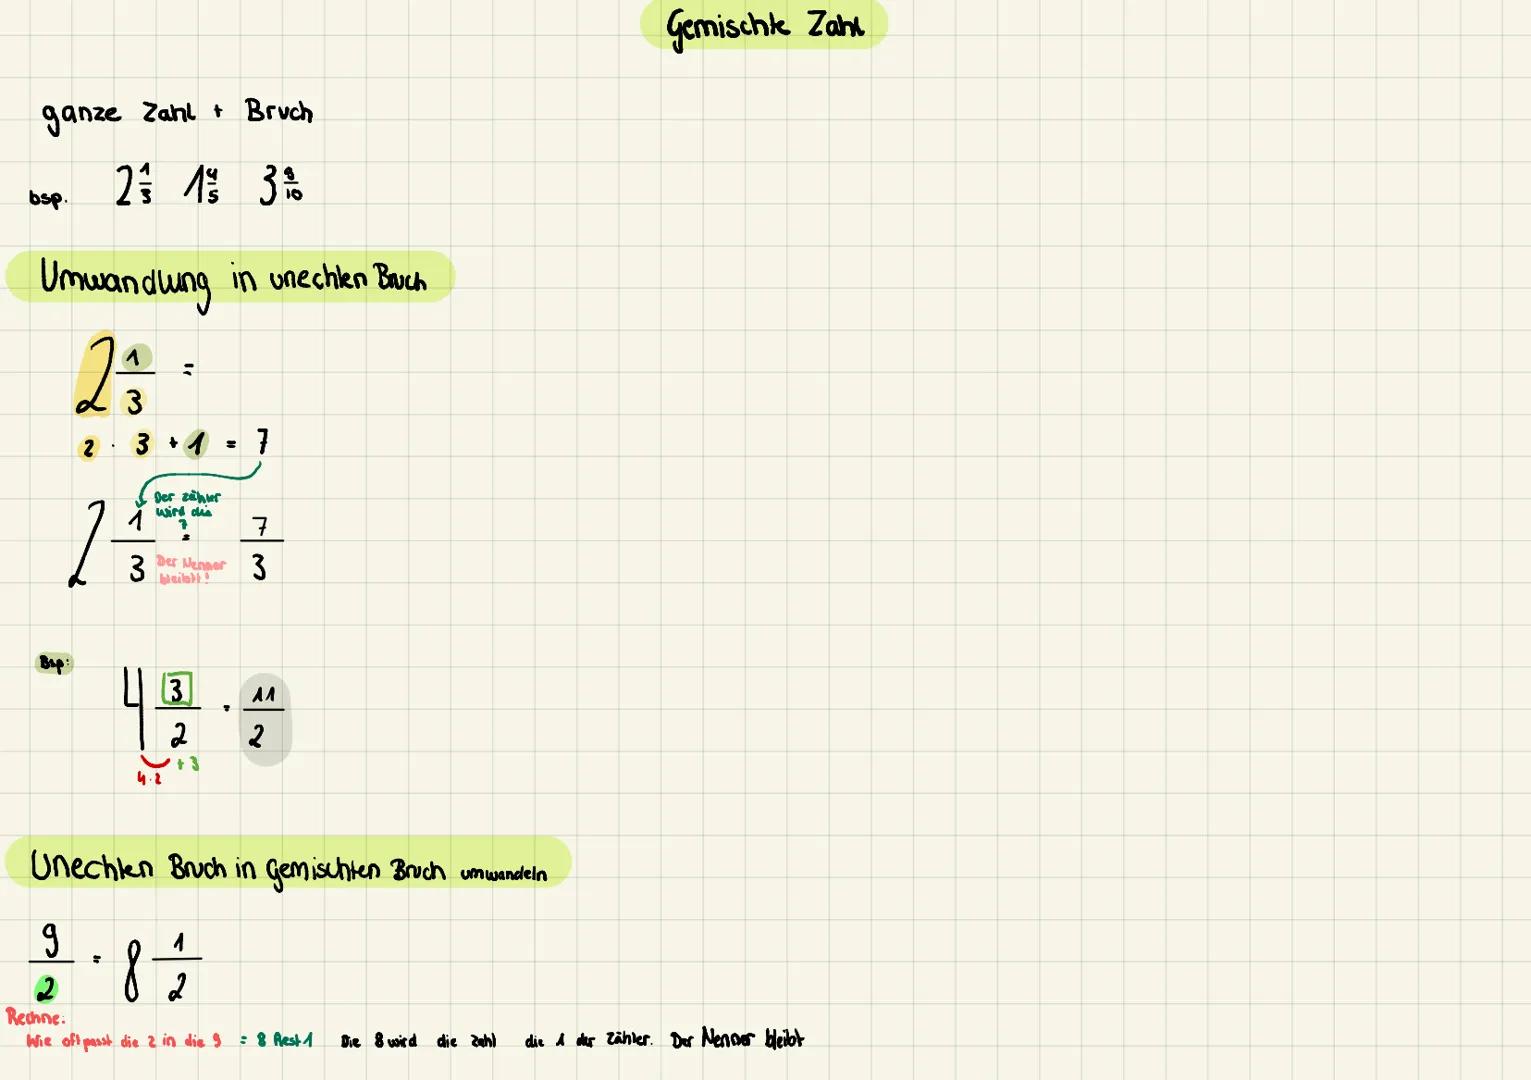 Gemischte Zahl
ganze Zahl + Bruch
bsp. 2 1/3 1 4/5 3 9/10
Umwandlung in unechten Bruch
2 1/3 =
2 · 3 + 1 = 7
Der Zähler
wird die
7
2 1/3 = 7/3
Der Nenner
bleibt!
Bsp:
4 3/2 = 11/2
4·2 + 3
Unechten Bruch in Gemischten Bruch umwandeln
9/2 = 8 1/2
Rechne:
Wie oft passt die 2 in die 9 = 8 Rest 1 Die 8 wird die Zahl die 1 der Zähler. Der Nenner bleibt